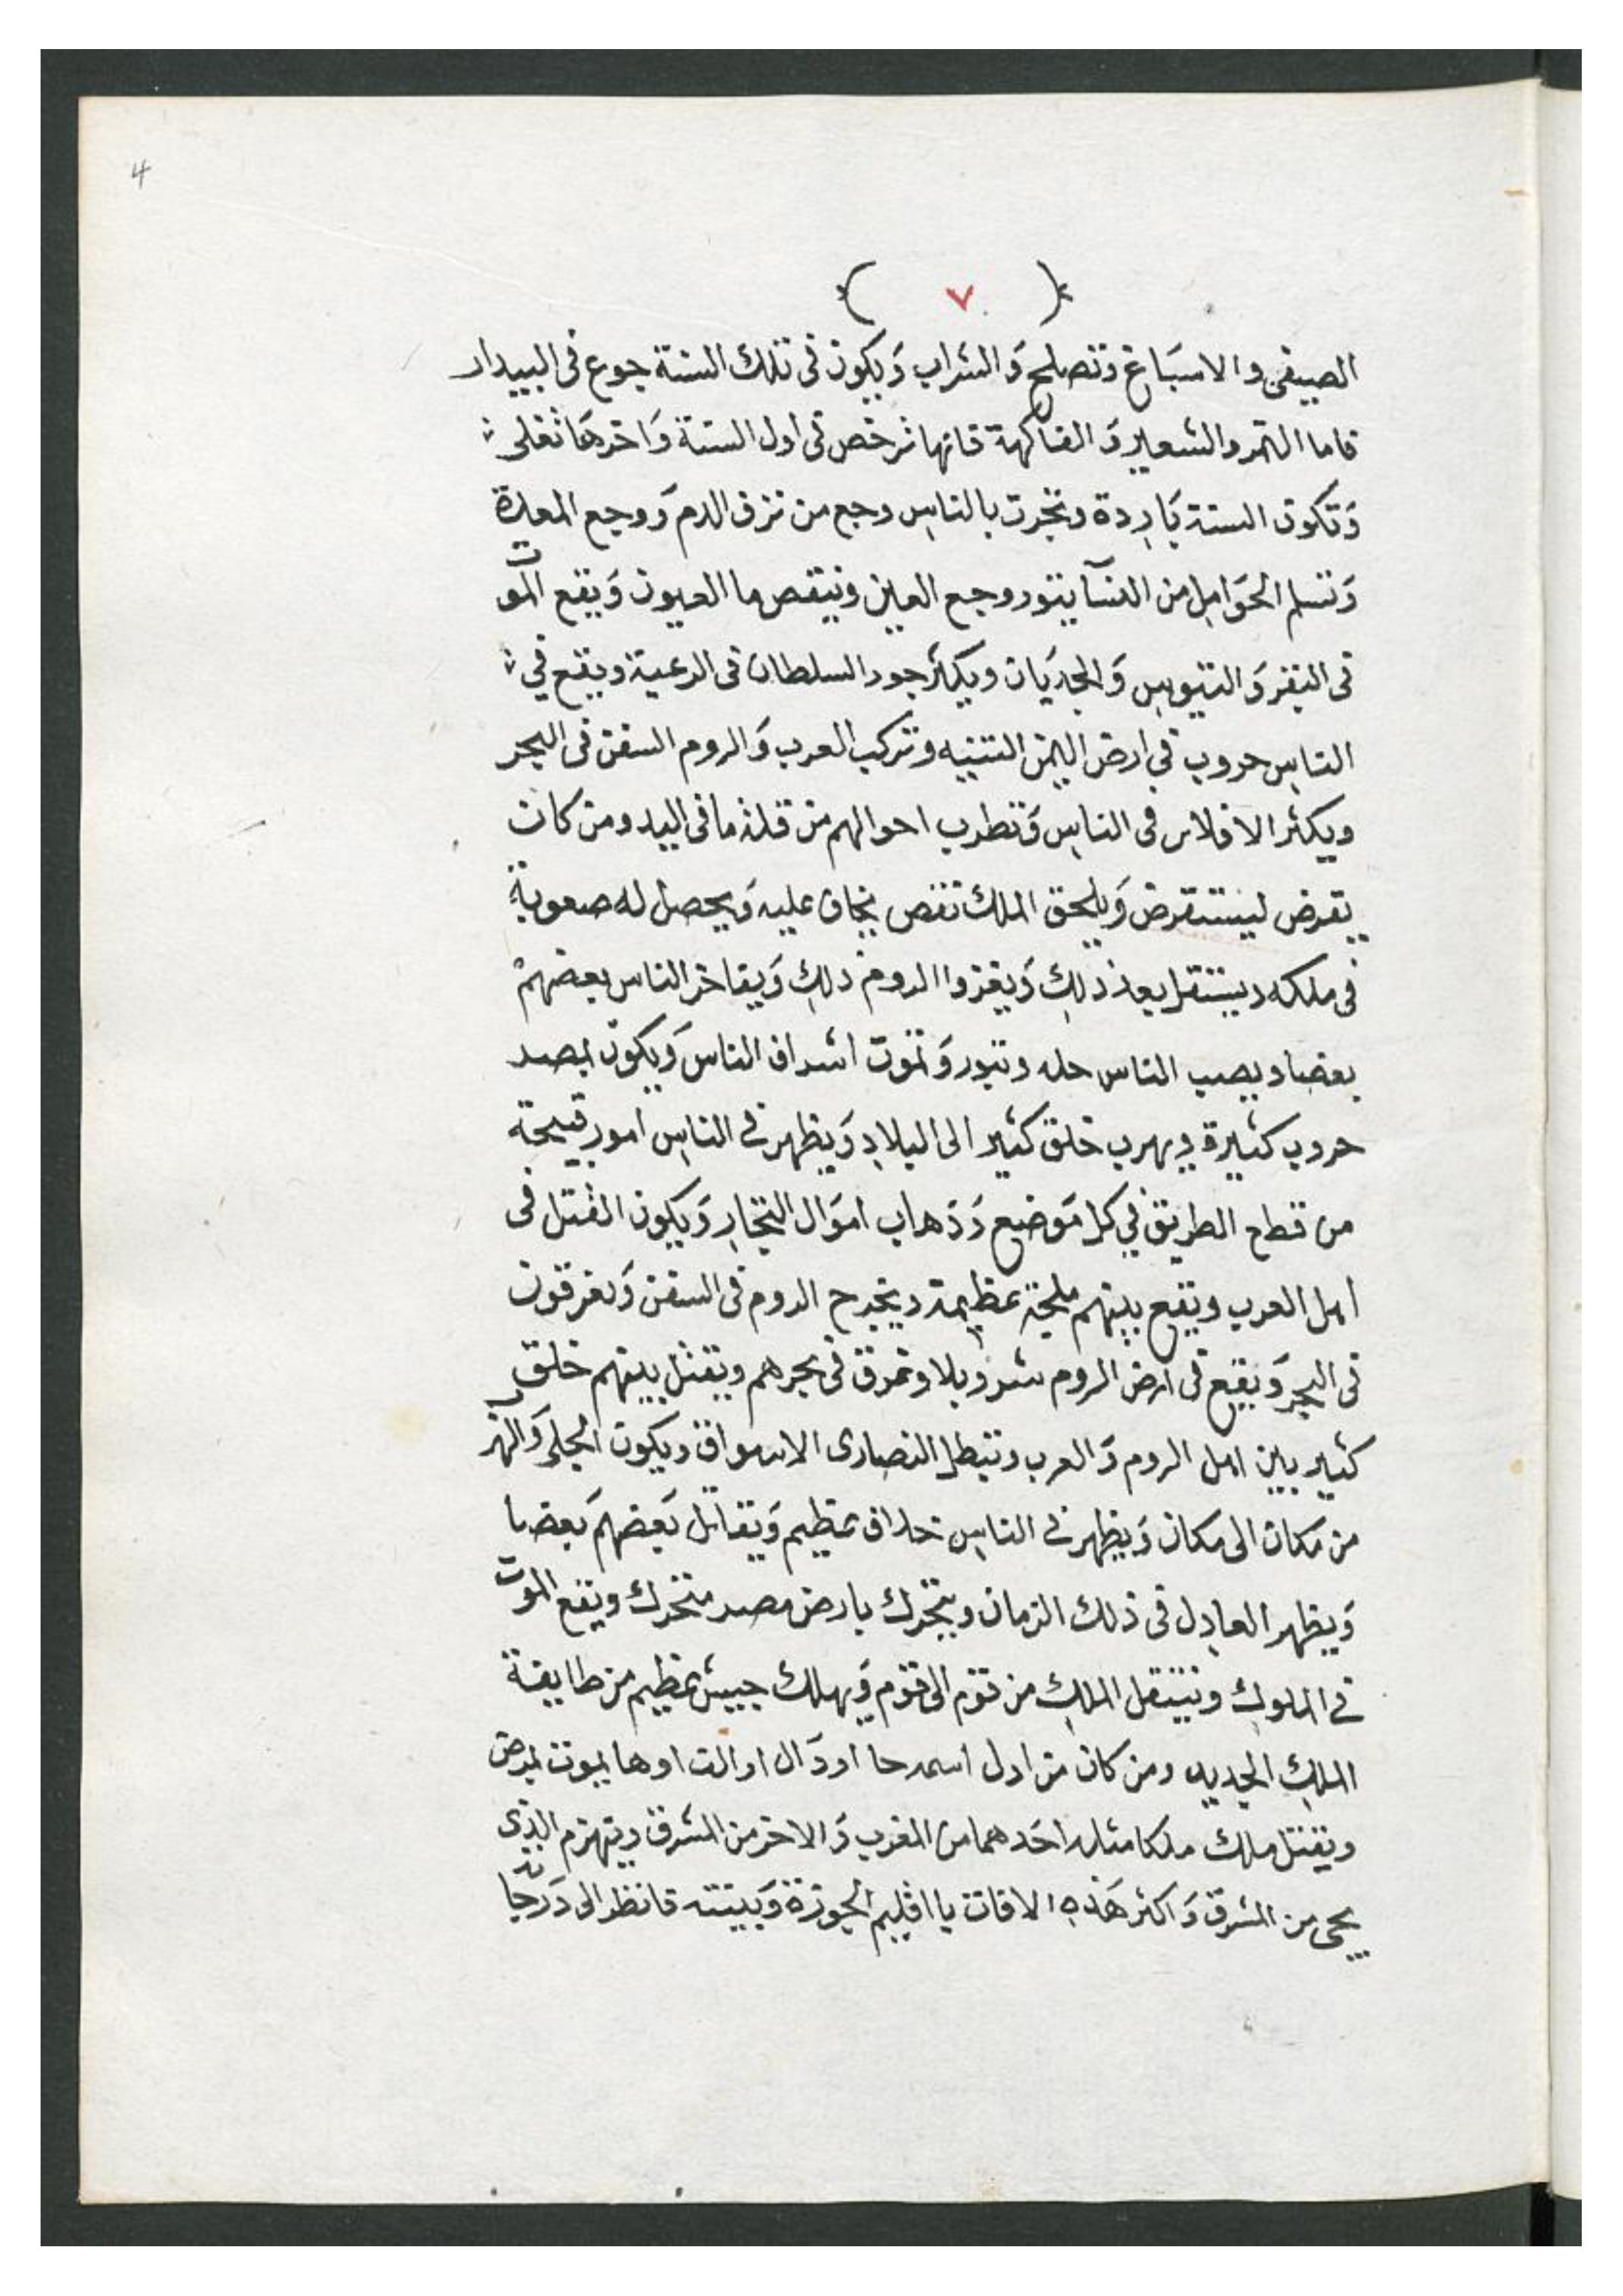 4
( ٧ )
الصيفى والاسبَاغ وتصلح وَالشراب وَيكون فى تلك السنة جوع فى البيدار
فاما التمر والشعاير وَالفاكهة فانها ترخص فى اول السنة وَاخرهَا تغلى
وَتكون السنة بَاردة وتجرت بالناس وجع من نزف الدم وَوجع المعدة
وَتسلم الحوَامل من النسآ يتور وجع العين وينقص ما العيون وَيقع الموت
فى البقر وَالتيوس وَالجديَان ويكثر جور السلطان فى الرعية ويقع في
الناس حروب في ارض اليمن السنيه وتركب العرب وَالروم السفن فى البحر
ويكثر الافلاس فى الناس وَتطرب احوالهم من قلة ما فى اليد ومن كان
يقرض ليستقرض وَيلحق الملك نقص يخاف عليه وَيحصل له صعوبة
فى ملكه ويستقل بعد ذلك وَيغزوا الروم ذلك وَيفاخر الناس بعضهم
بعضا ويصيب الناس حله وتبور وَتموت اشراف الناس وَيكون بمصر
حروب كثيرة ويهرب خلق كثير الى البلاد وَيظهر فى الناس امور قبيحة
من قطاع الطريق في كل مَوضع وَذهاب اموَال التجار وَيكون القتل فى
اهل العرب ويقع بينهم ملحمة عظيمة ويخرج الروم فى السفن وَيغرقون
فى البحر وَيقع فى ارض الروم شر وبلا وتمرق فى بحرهم ويقتل بينهم خلق
كثير بين اهل الروم وَالعرب وتبطل النصارى الاسواق ويكون الجلى وَالهرب
من مَكان الى مكان وَيظهر فى الناس خلاف عظيم وَيقاتل بَعضهم بَعضا
وَيظهر العادل فى ذلك الزمان ويتحرك بارض مصر متحرك ويقع الموت
فى الملوك وينتقل الملك من قوم الى قوم وَيهلك جيش عظيم من طايفة
الملك الجديد ومن كان من اول اسمه حا اودَال او الف اوها يموت بمرض
ويقتل ملك ملكا مثله احَدهما من المغرب وَالاخر من المشرق وينهزم الذى
يجى من المشرق وَاكثر هَذه الافات يا اقليم الجوزة وَبيته فانظر الى دَرجاته